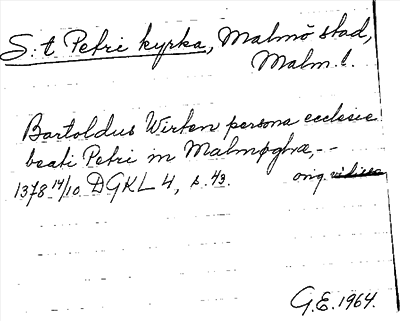 S:t Petri kyrka, Malmö stad,
Malm. l.
Bartoldus Wirten persona ecclesie
beati Petri in Malmøghæ, --
1378 14/10 DGKL 4, s. 43. orig.
G.E. 1964.